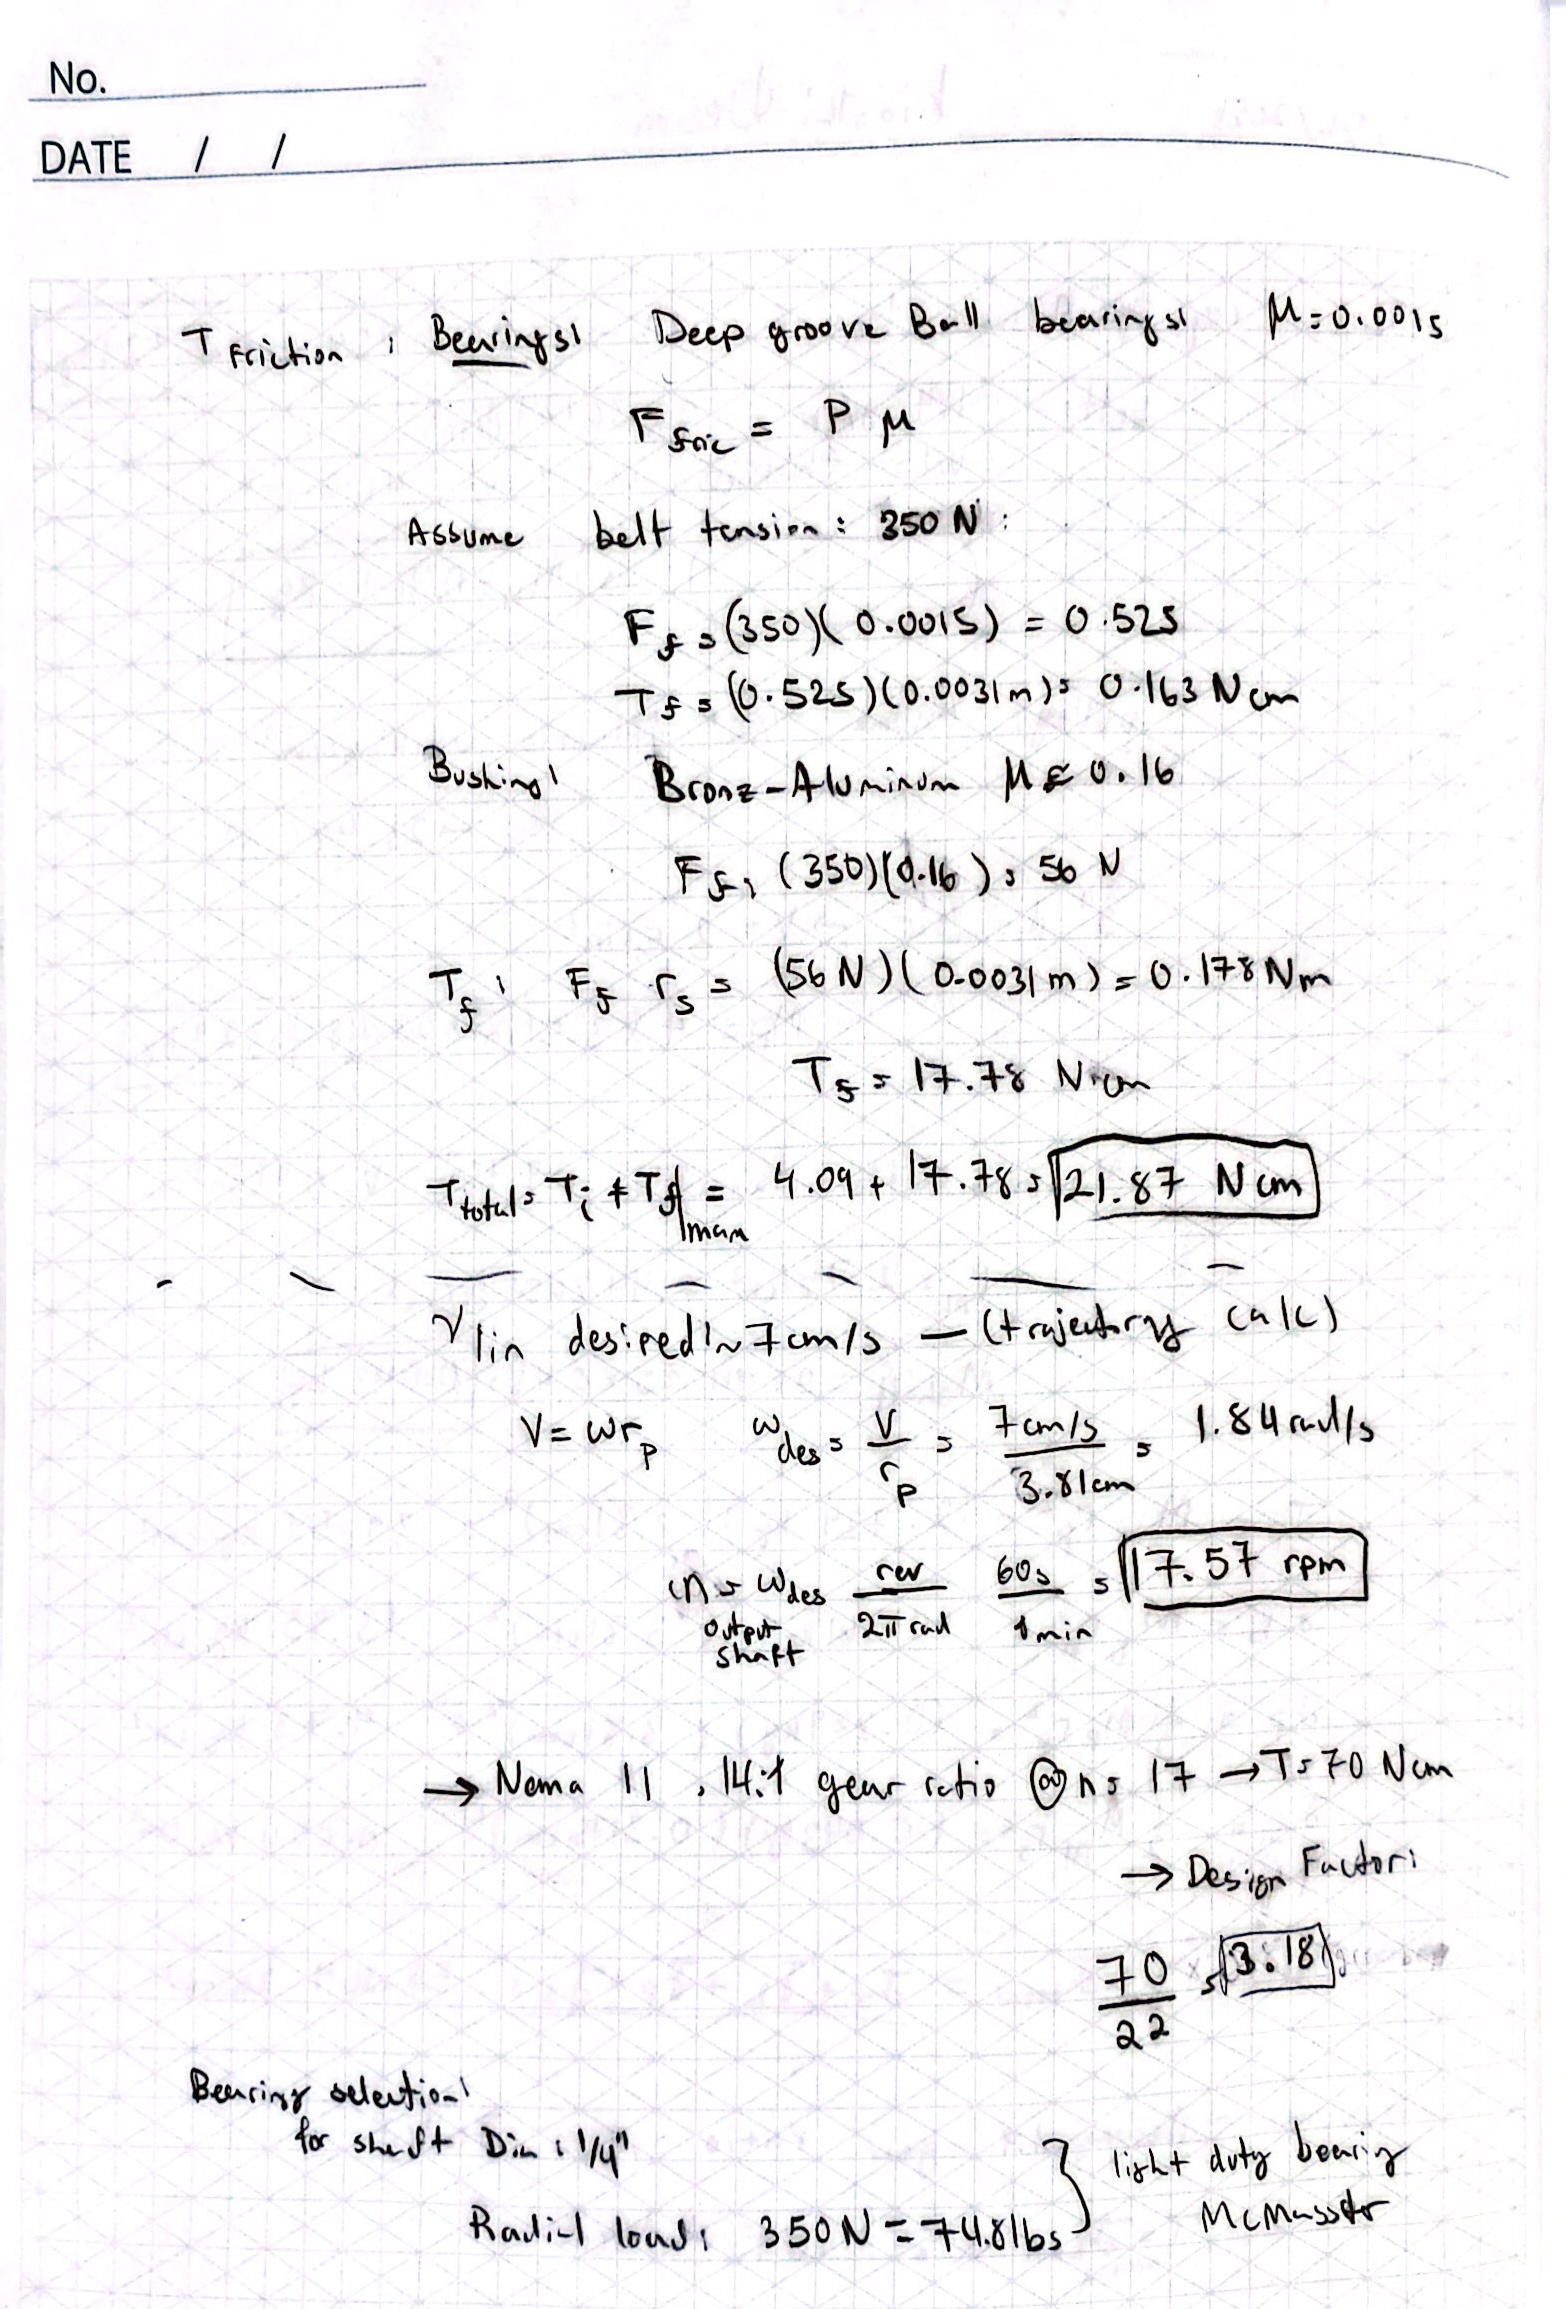 No.
DATE / /
T Friction : Bearings: Deep groove Ball bearings: μ = 0.0015
F fric = P μ
Assume belt tension : 350 N :
F f = (350)(0.0015) = 0.525
T f = (0.525)(0.0031m) = 0.163 N cm
Bushing: Bronz-Aluminum μ ≈ 0.16
F f : (350)(0.16) = 56 N
T f : F f r s = (56 N)(0.0031 m) = 0.178 Nm
T f = 17.78 N.cm
T total = T i + T f | max = 4.09 + 17.78 = 21.87 N cm
V lin desired: ~ 7 cm/s — (trajectory calc)
V = ω r p ω des = V / r p = 7 cm/s / 3.81 cm = 1.84 rad/s
n = ω des rev / 2π rad 60 s / 1 min = 17.57 rpm
output
shaft
→ Nema 11 , 14:1 gear ratio @ n = 17 → T = 70 N cm
→ Design Factor:
70 / 22 = 3.18
Bearing selection:
for shaft Dia : 1/4"
Radial load: 350 N = 74.8 lbs } light duty bearing
McMasster